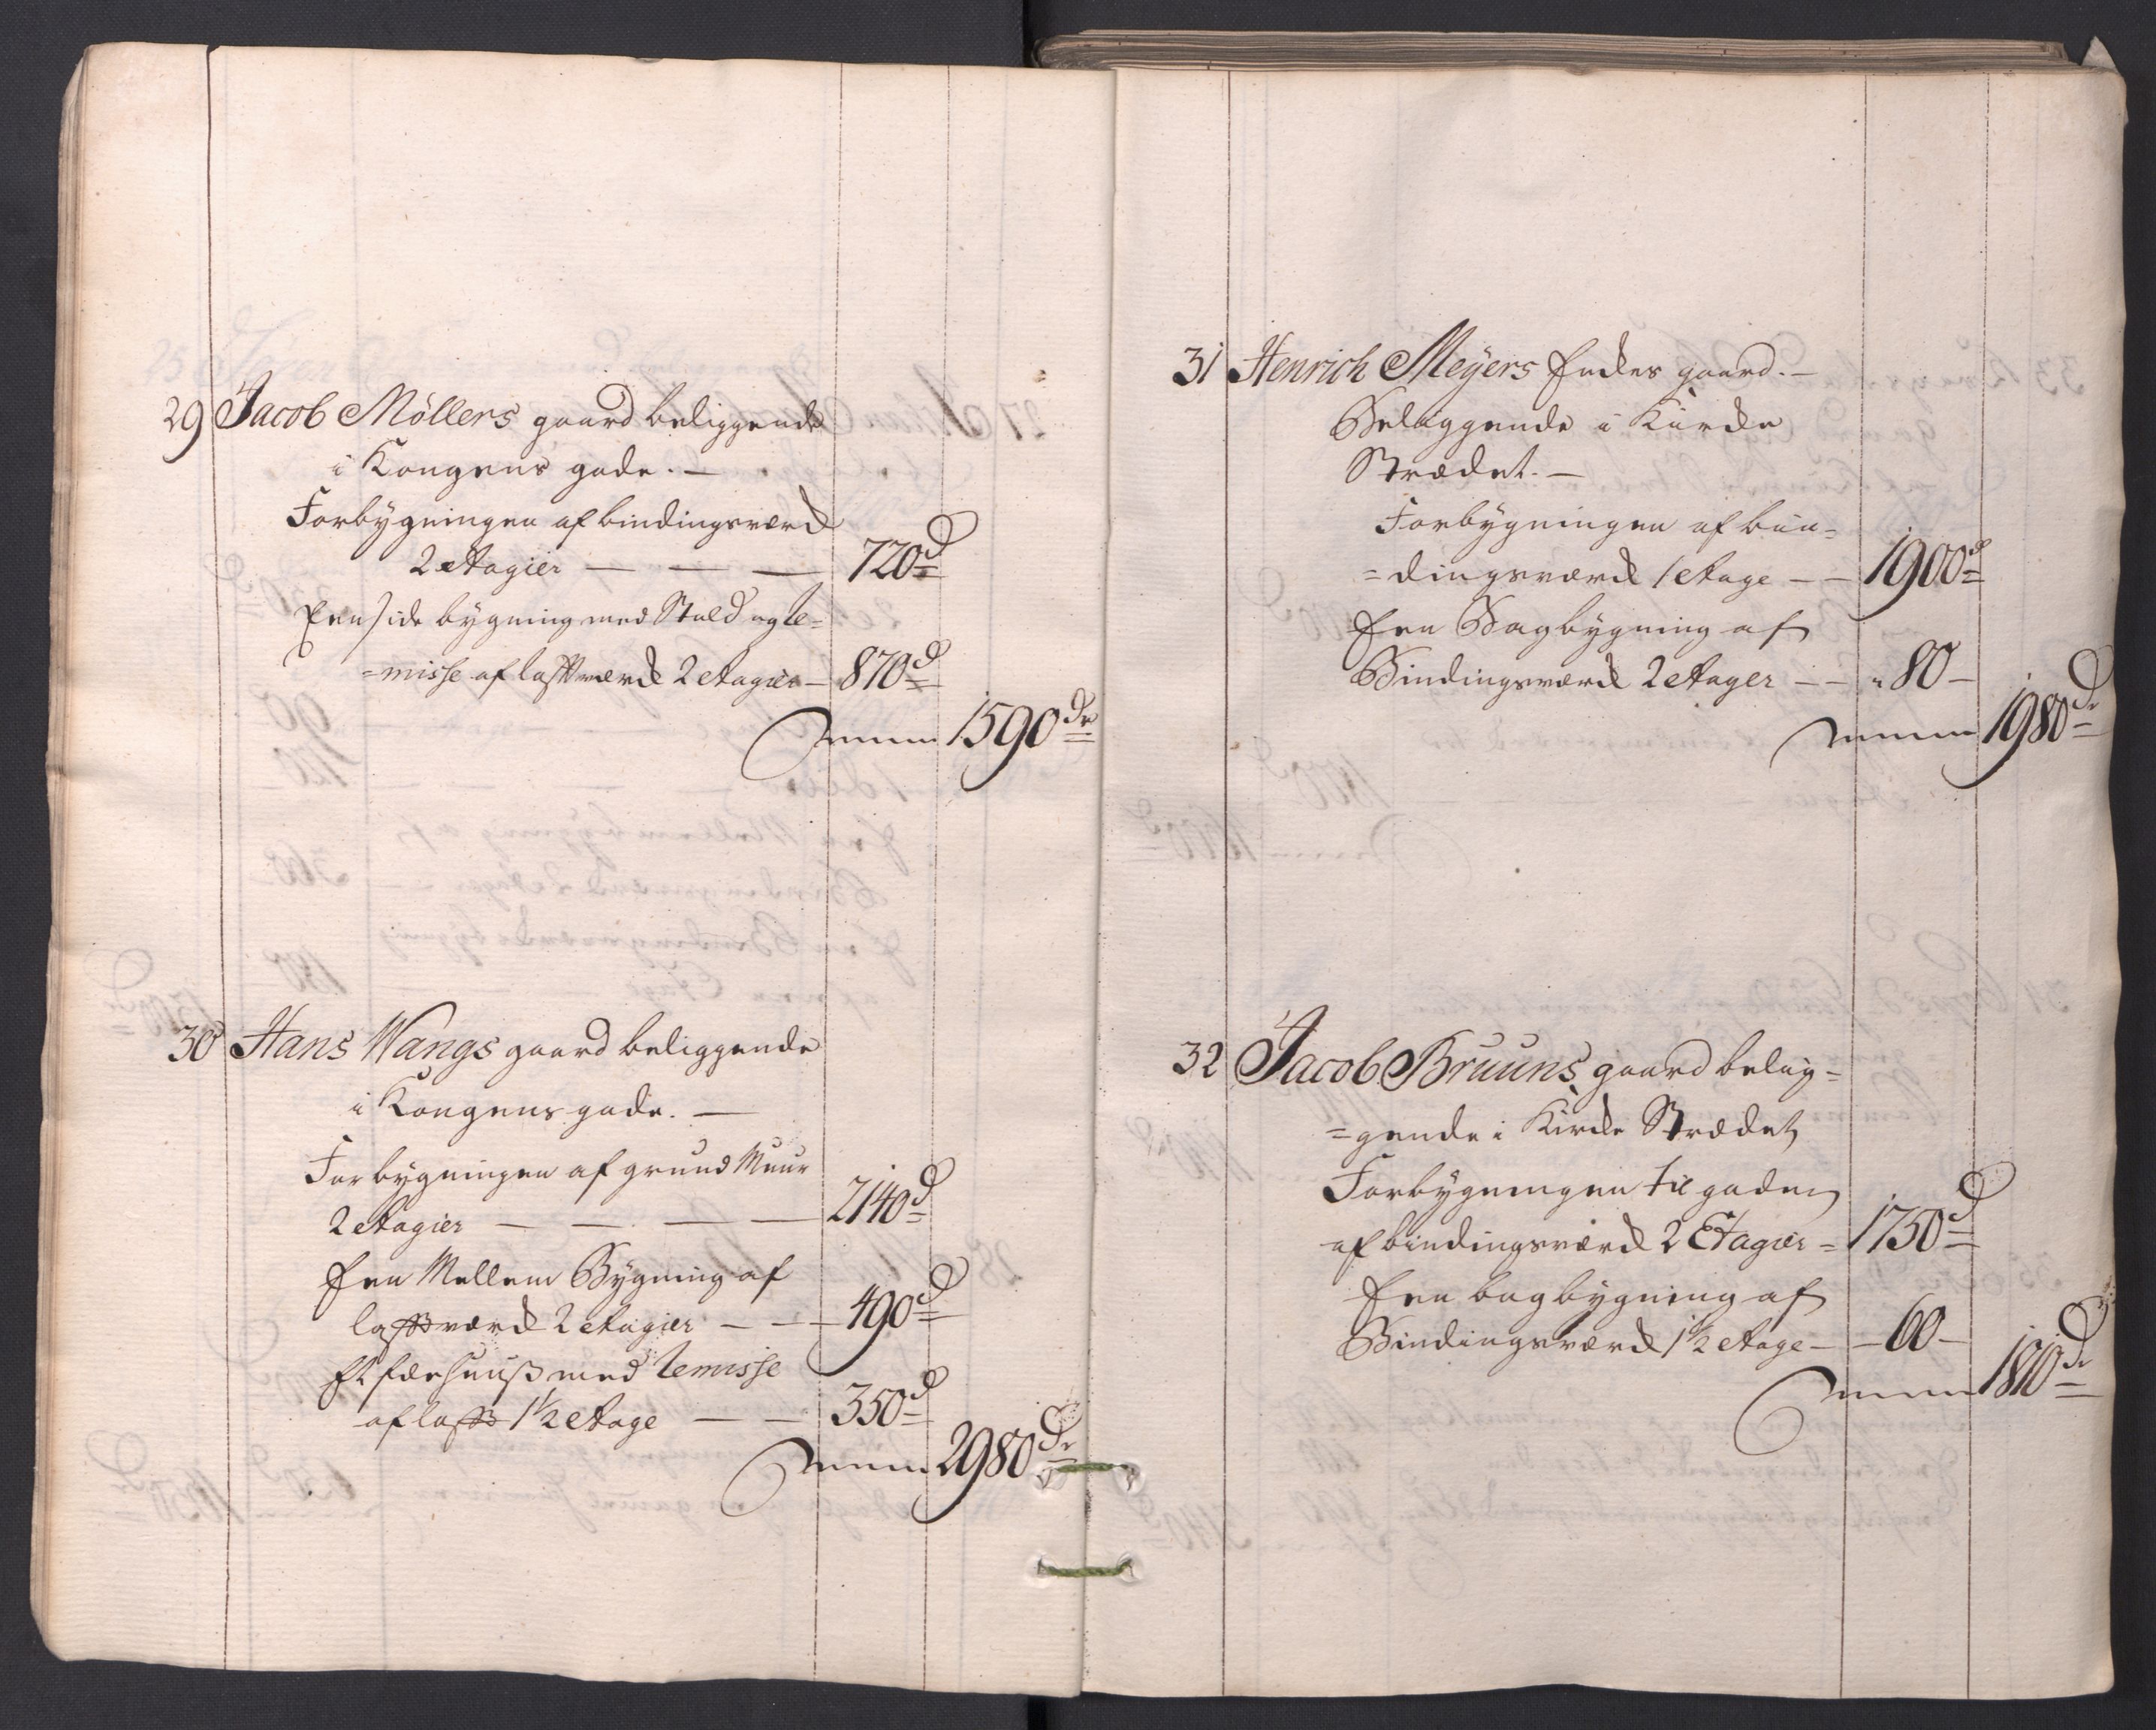 29 Jacob Møllers gaard beliggende
i Kongens gade. —
Forbygningen af bindingsværk
2 etagier — — — 720 d
Een side bygning med Stald og Re=
=misse af laftværk 2 etagier — 870 d
Summa 1590 dr
30 Hans Wangs gaard beliggende
i Kongens gade. —
Forbygningen af grund Muur
2 etagier — — — — 2140 d
Een Mellem Bygning af
laftværk 2 etagier — — — 490 d
Et færhuuß med Remisse
af laft 1½ etage — — 350 d
Summa 2980 dr
31 Henrich Meyers Enkes gaard. —
Beliggende i Kirke
Strædet. —
Forbygningen af bin=
=dingsværk 1 etage — — 1900 d
Een Bagbygning af
Bindingsværk 2 etager — — " 80 —
Summa 1980 dr
32 Jacob Bruuns gaard belig=
=gende i Kirke Strædet
Forbygningen til gaden
af bindingsværk 2 Etagier = 1750 d
Een bagbygning af
Bindingsværk 1½ etage — — 60 —
Summa 1810 dr